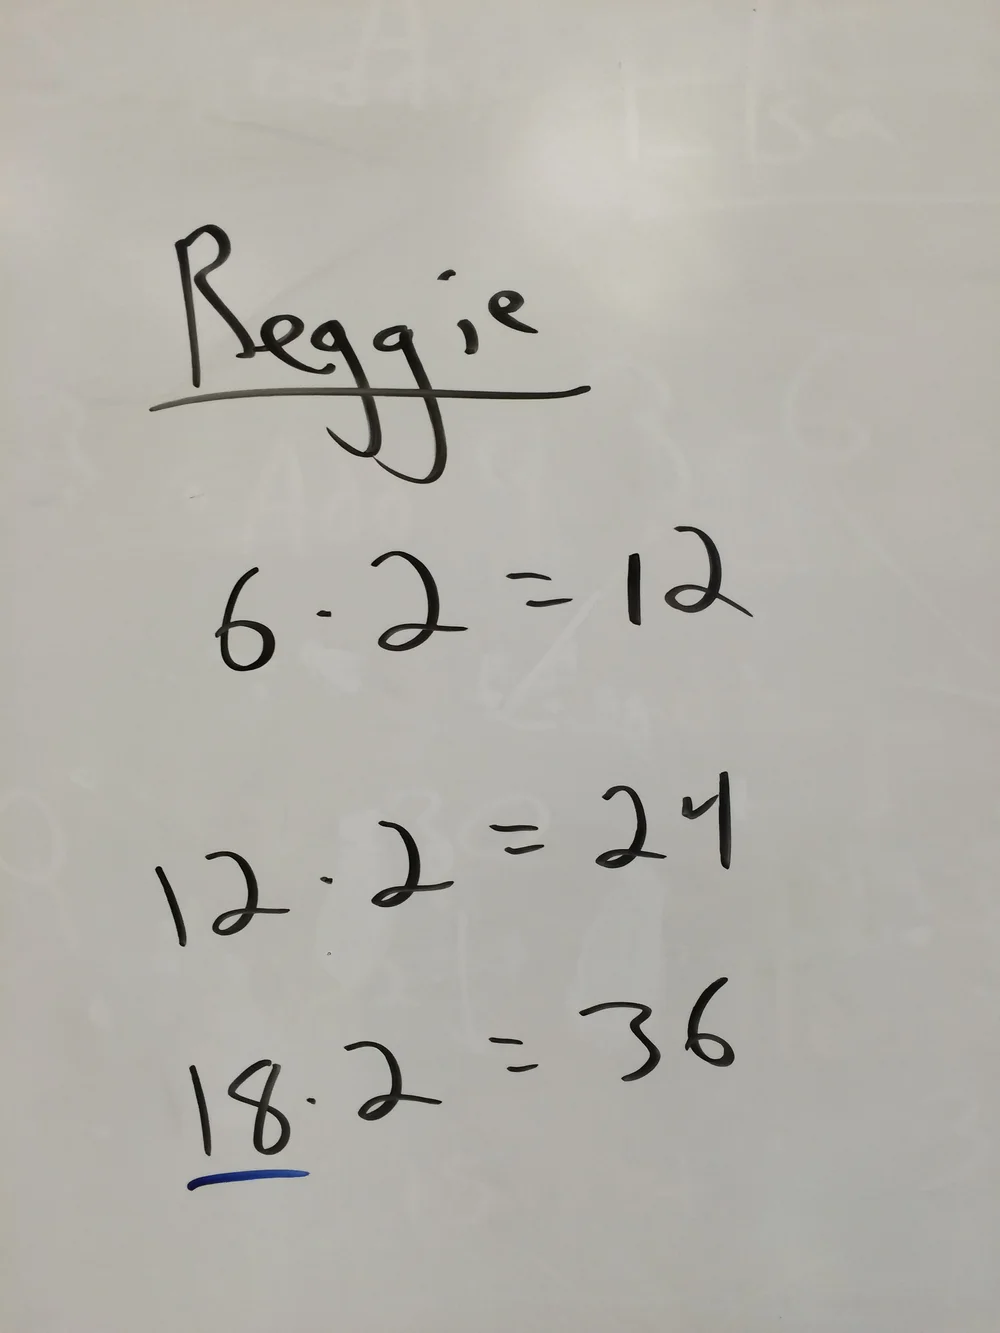 Reggie
6 · 2 = 12
12 · 2 = 24
18 · 2 = 36